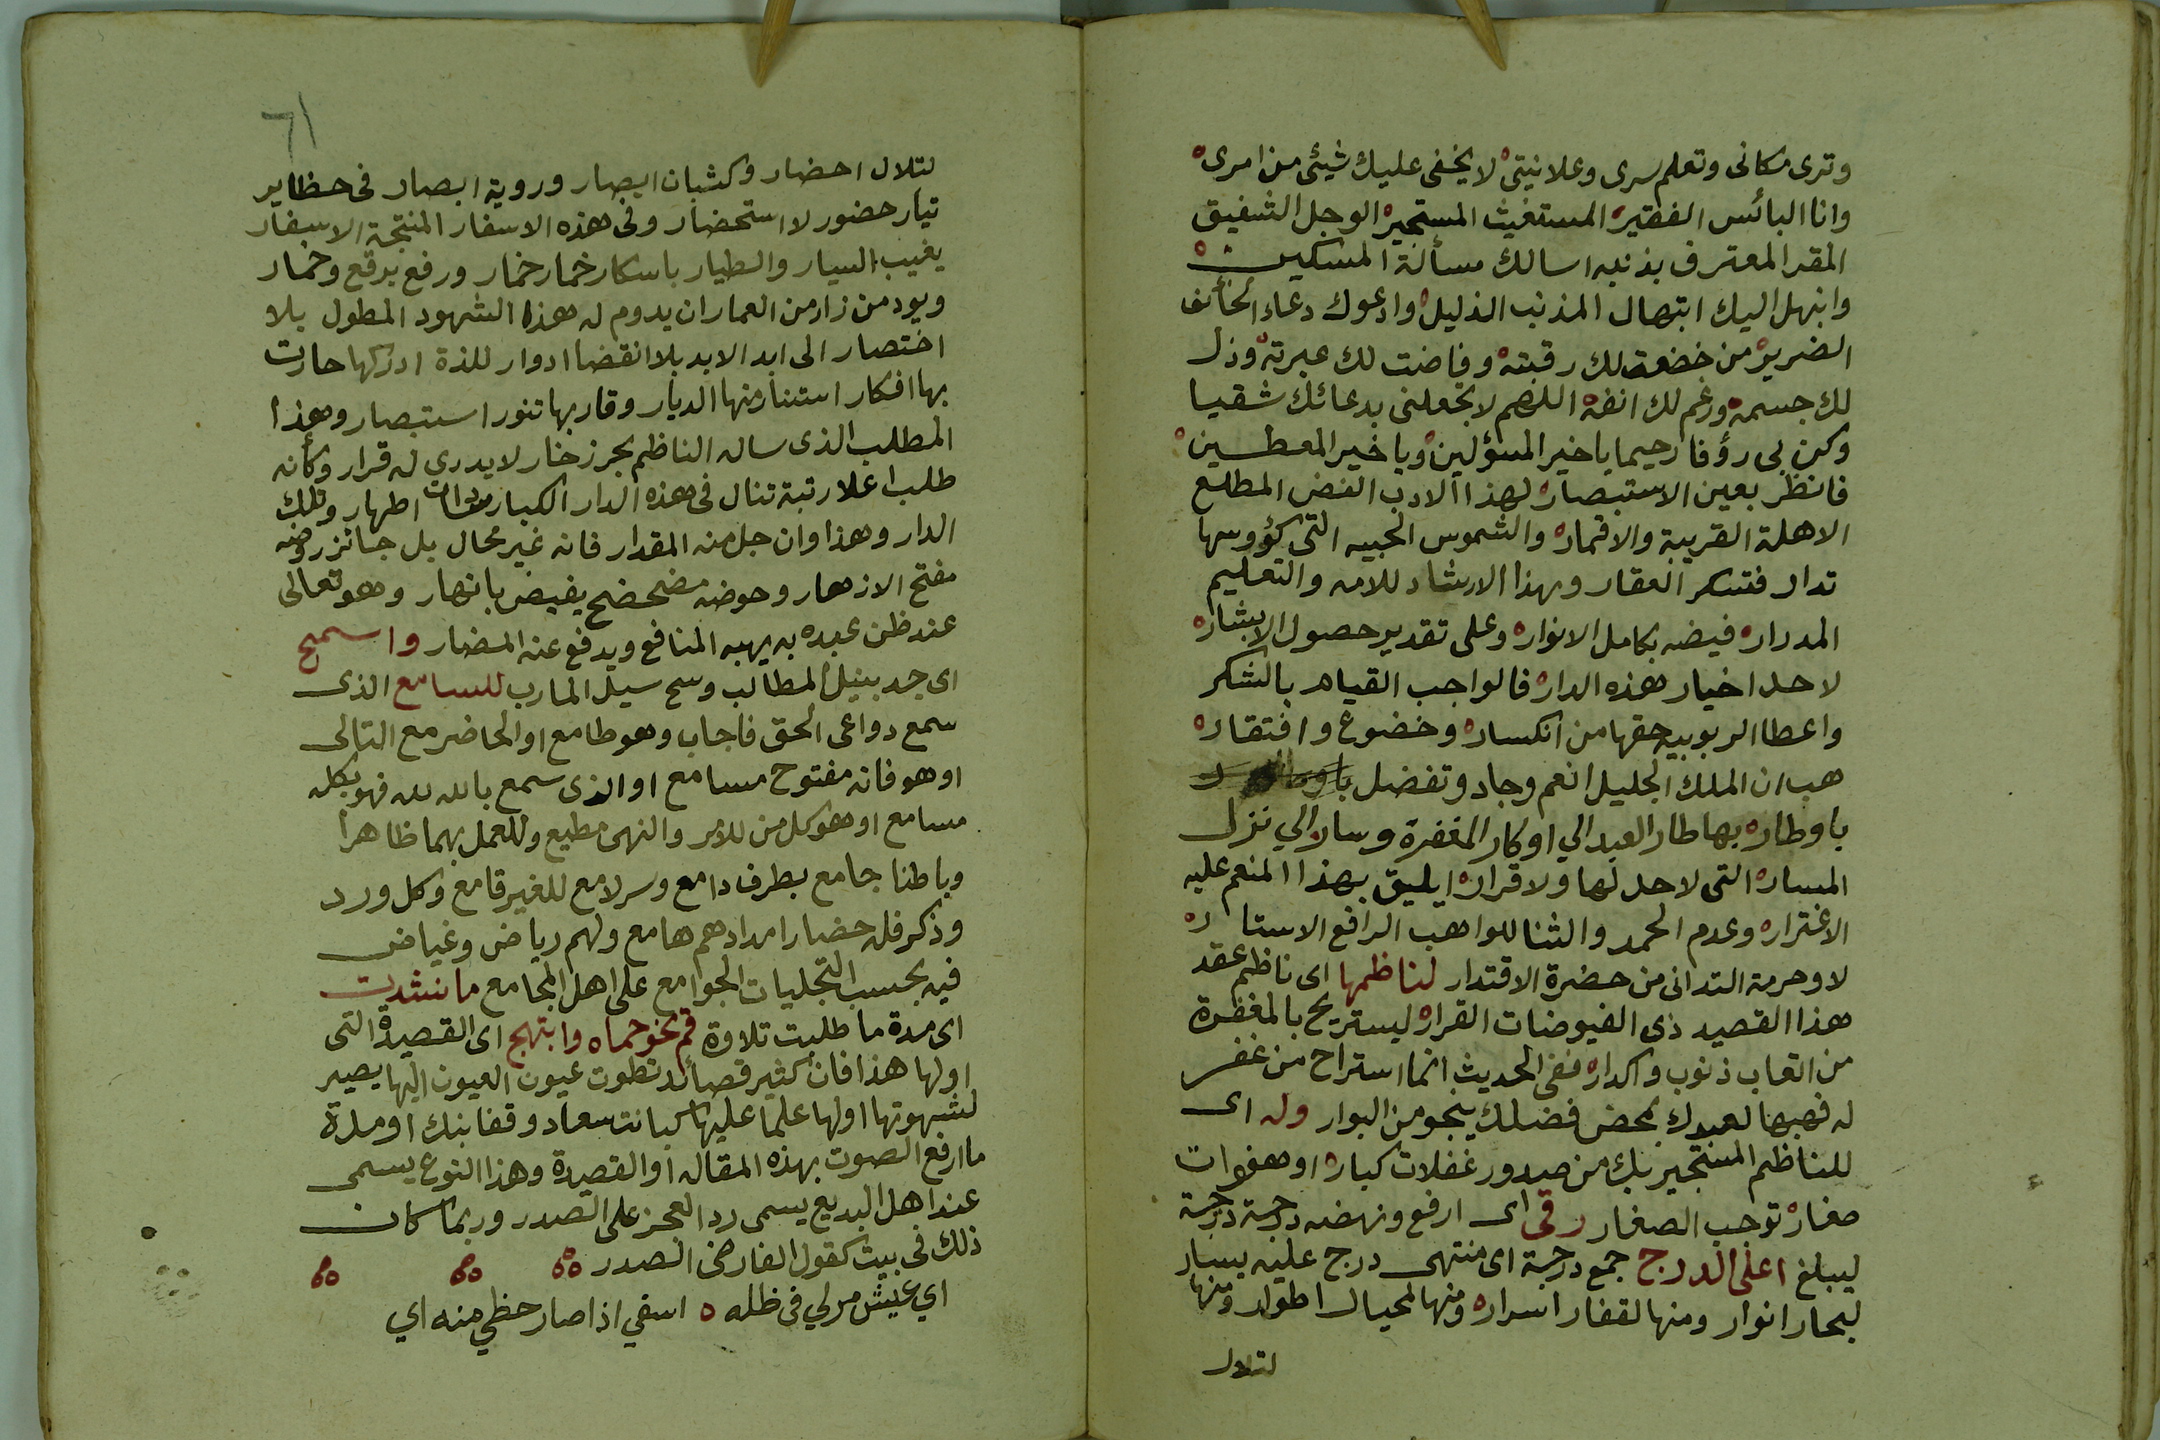 وترى مكانى وتعلم سرى وعلانيتى ه لا يخفى عليك شيئى من امرى ه
وانا البائس الفقير ه المستغيث المستجير ه الوجل الشفيق
المقر المعترف بذنبه اسالك مسألة المسكين ه
وابتهل اليك ابتهال المذنب الذليل ه وادعوك دعاء الخائف
الضرير ه من خضعت لك رقبته ه وفاضت لك عبرته ه وذل
لك جسمه ه ورغم لك انفه ه اللهم لا تجعلنى بدعائك شقيا
وكن بى رؤفا رحيما يا خير المسؤلين ه ويا خير المعطين ه
فانظر بعين الاستبصار ه لهذا الادب الغض المطلع
الاهلة القريبة والاقمار ه والشموس الحبيه التى كؤوسها
تدار فتسكر العقار وبهذا الارشاد للامه والتعليم
المدرار ه فيضه بكامل الانوار ه وعلى تقدير حصول الابشار ه
لاحد اخيار هذه الدار ه فالواجب القيام بالشكر
واعطا الربوبيه حقها من انكسار ه وخضوع وافتقار ه
هب ان الملك الجليل انعم وجاد وتفضل
باوطار ه بها طار العبد الي اوكار المغفرة وسار الي نزل
المسار ه التى لا حد لها ولا قرار ه ايليق بهذا المنعم عليه
الاغترار ه وعدم الحمد والثنا للواهب الرافع الاستار ه
لا وحرمة التدانى من حضرة الاقتدار لناظمها اى ناظم عقد
هذا القصيد ذى الفيوضات القرار ه ليستريح بالمغفرة
من اتعاب ذنوب واكدار ه ففى الحديث انما استراح من غفر
له فهبها لعبدك بمحض فضلك ينجو من البوار وله اى
للناظم المستجير بك من صدور غفلات كبار ه او هفوات
صغار ه توجب الصغار رقى اى ارفع ونهضه درجة درجة
ليبلغ اعلى الدرج جمع درجة اى منتهى درج عليه يسار
لبحار انوار ومنها لقفار اسرار ه ومنها لمحيال اطوار ومنها
لتلال
٦١
لتلال احضار وكثبان ابصار وروية ابصار فى حظاير
تيار حضور لا استحضار وفى هذه الاسفار المنتجة الاسفار
يغيب السيار والطيار باسكار خمار خمار ورفع برقع وخمار
ويود من زار من العمار ان يدوم له هذا الشهود المطول بلا
اختصار الى ابد الابد بلا انقضا ادوار للذة ادركها حارت
بها افكار استنار منها الديار وقار بها تنور استبصار وهذا
المطلب الذى ساله الناظم بحر زخار لا يدري له قرار وكأنه
طلب اعلا رتبة تنال فى هذه الدار الكبار اطهار وتلك
الدار وهذا وان جل منه المقدار فانه غير محال بل جائز روضه
مفتح الازهار وحوضه مضحضح يفيض بانهار وهو تعالى
عند ظن عبده به يهبه المنافع ويدفع عنه المضار واسمح
اى جد بنيل المطالب وسح سيل المارب للسامع الذى
سمع دواعى الحق فاجاب وهو طامع او الحاضر مع التالى
او هو فانه مفتوح مسامع او الذى سمع بالله لله فهو بكله
مسامع او هو كل من للامر والنهى مطيع وللعمل بهما ظاهرا
وباطنا جامع بطرف دامع وسر لامع للغير قامع وكل ورد
وذكر فله حضار امدادهم هامع ولهم رياض وغياض
فيه بحسب التجليات الجوامع على اهل المجامع ما نشدت
اى مدة ما طلبت تلاوة قم نحو حماه وابتهج اى القصيدة التى
اولها هذا فان كثير قصائد تطوت عيون العيون اليها يصير
لشهوتها اولها علما عليها كبانت سعاد وقفا نبك او مدة
ما ارفع الصوت بهذه المقاله او القصيدة وهذا النوع يسمى
عند اهل البديع يسمى رد العجز على الصدر وربما كان
ذلك فى بيت كقول الفارضى الصدر
اي عيش مر لي فى ظله ه اسفي اذا صار حظي منه اي